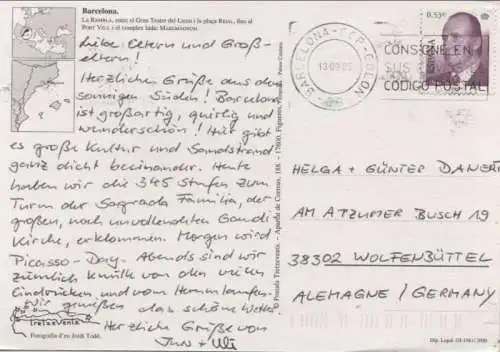 Barcelona.
La Rambla, entre el Gran Teatre del Liceu i la plaça Reial, fins al
Port Vell i el complex lúdic Maremàgnum.
Liebe Eltern und Groß-
eltern!
Herzliche Grüße aus dem
sonnigen Süden! Barcelona
ist großartig, quirlig und
wunderschön! Hier gibt
es große Kultur und Sandstrand
ganz dicht beieinander. Heute
haben wir die 345 Stufen zum
Turm der Sagrada Familia, der
großen, noch unvollendeten Gaudi-
Kirche, erklommen. Morgen wird
Picasso-Day. Abends sind wir
ziemlich k.o. von den vielen
Eindrücken und vom Herumlaufen.
Wir genießen das schöne Wetter
Herzliche Grüße von
Ines + Ulli
triangle
Fotografia d'en Jordi Todó.
BARCELONA-CEP-COLON
13 09 05
CONSIGNE EN
SUS
CODIGO POSTAL
0,53€
ESPAÑA
HELGA + GÜNTER
AM ATZUMER BUSCH 19
38302 WOLFENBÜTTEL
ALEMAGNE / GERMANY